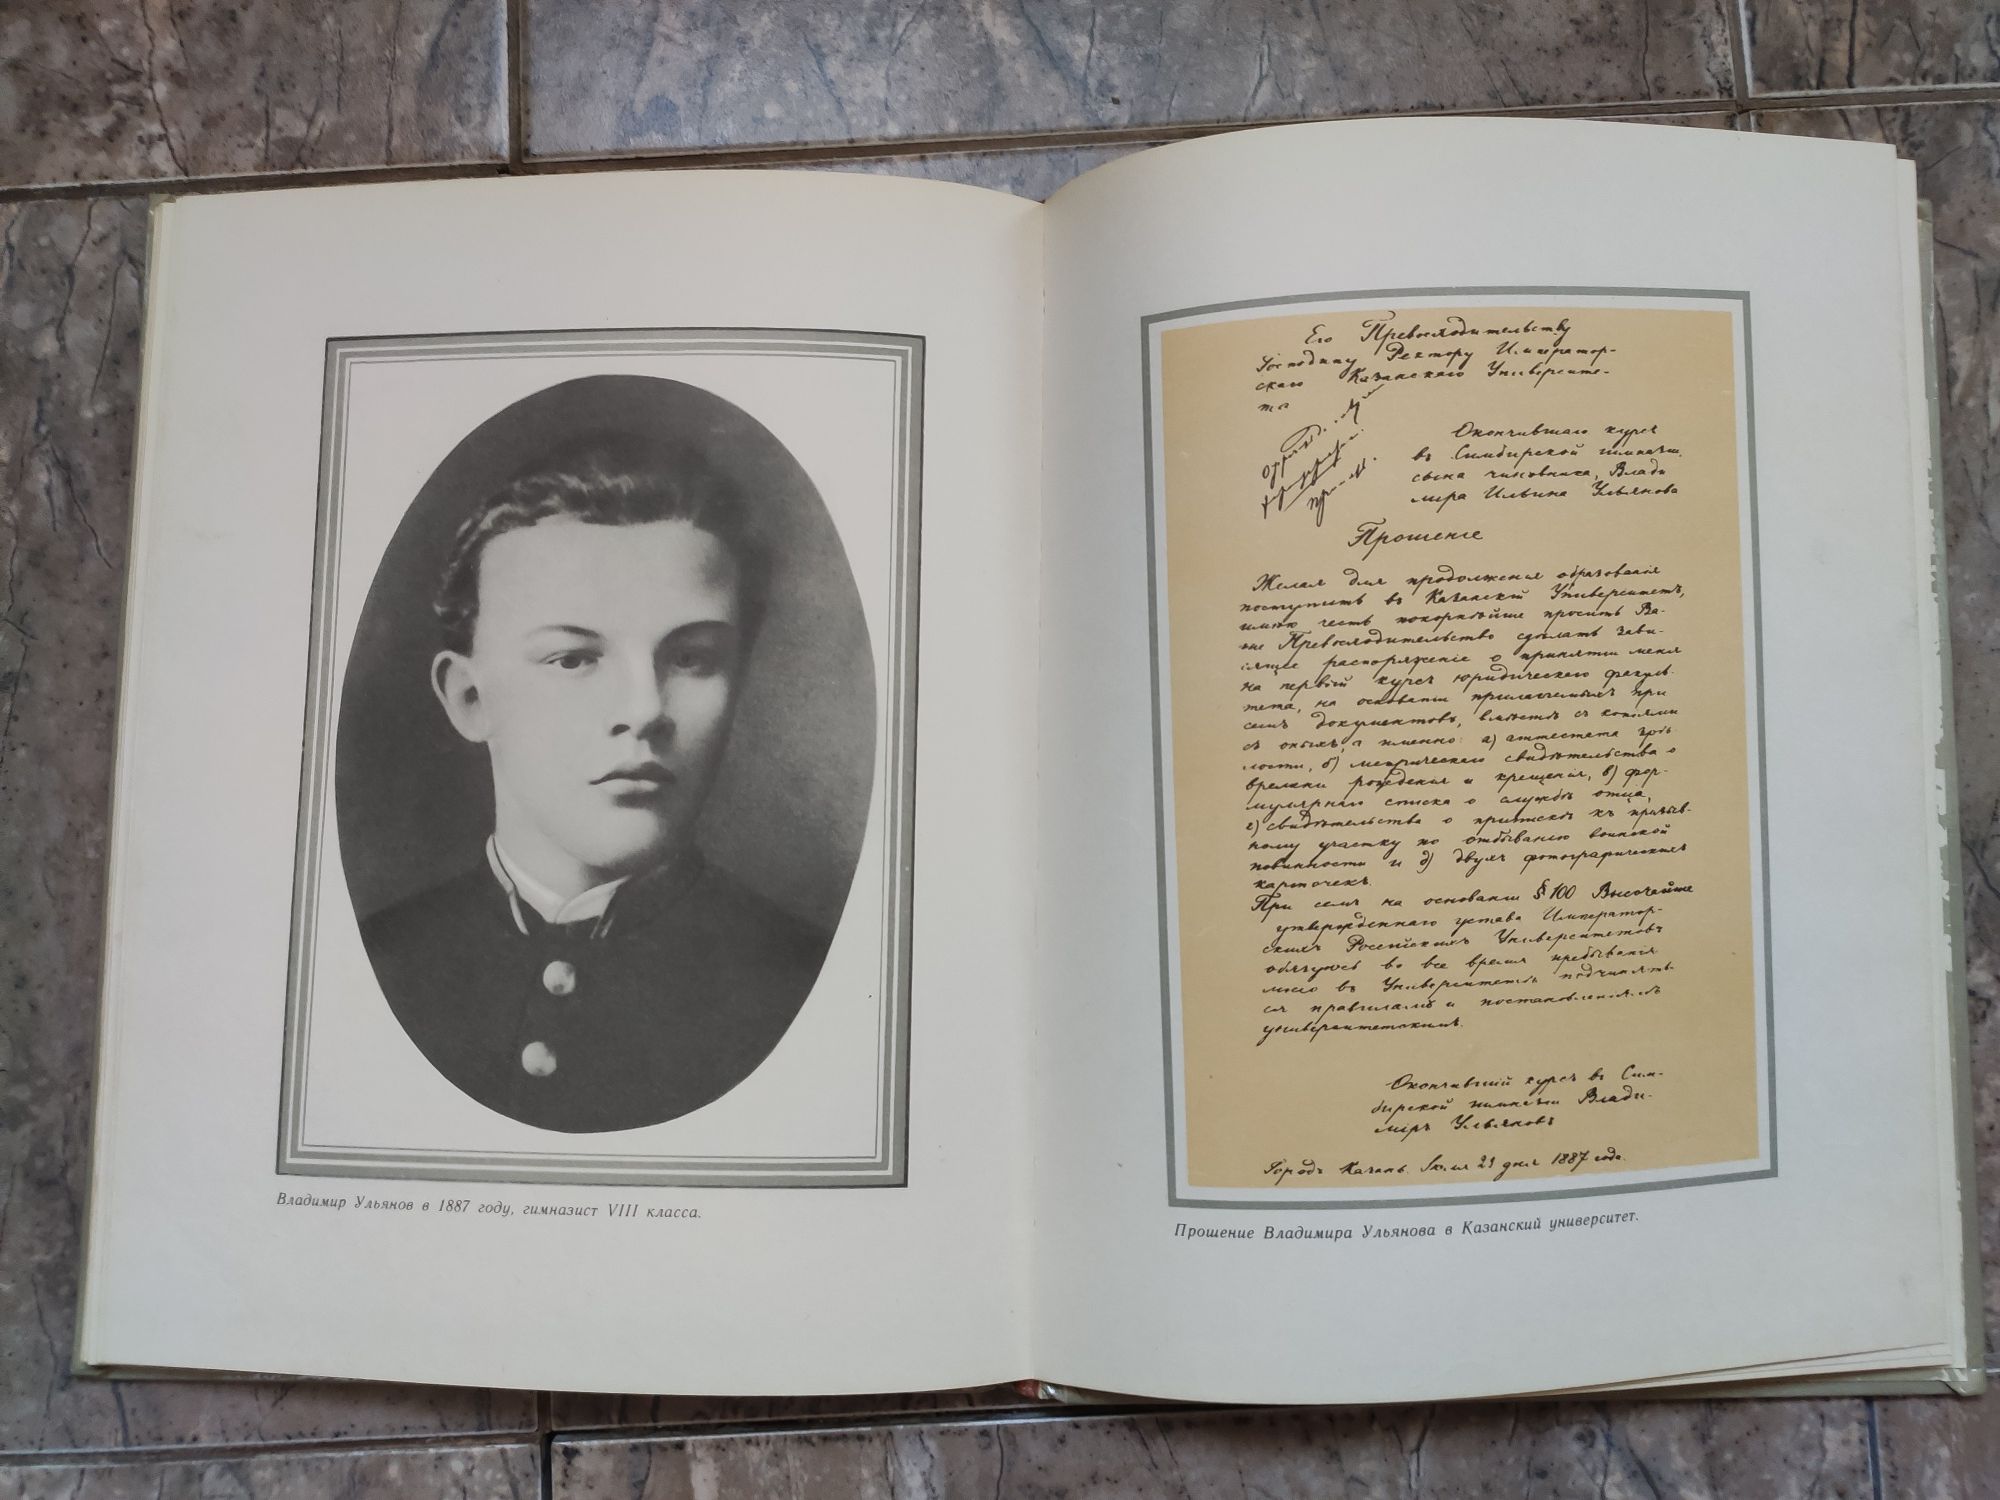 Владимир Ульянов в 1887 году, гимназист VIII класса.
Его Превосходительству
Господину Ректору Император-
скаго Казанскаго Университе-
та
Окончившаго курсъ
въ Симбирской гимназіи,
сына чиновника, Влади
міра Ильина Ульянова
Прошеніе
Желая для продолженія образованія
поступить въ Казанскій Университетъ,
имѣю честь покорнѣйше просить Ва-
ше Превосходительство сдѣлать зави-
сящее распоряженіе о принятіи меня
на первый курсъ юридическаго факуль-
тета, на основаніи прилагаемыхъ при
семъ документовъ, вмѣстѣ съ копіями
съ оныхъ, а именно: а) аттестата зрѣ-
лости, б) метрическаго свидѣтельства о
времени рожденія и крещенія, в) фор-
мулярнаго списка о службѣ отца,
г) свидѣтельства о припискѣ къ призыв-
ному участку по отбыванію воинской
повинности и д) двухъ фотографическихъ
карточекъ.
При семъ на основаніи § 100 Высочайше
утвержденнаго устава Император-
скихъ Россійскихъ Университетовъ
обязуюсь во все время пребыванія
моего въ Университетѣ подчинять-
ся правиламъ и постановленіямъ
университетскимъ.
Окончившій курсъ въ Сим-
бирской гимназіи Влади-
міръ Ульяновъ
Городъ Казань. Іюля 29 дня 1887 года.
Прошение Владимира Ульянова в Казанский университет.